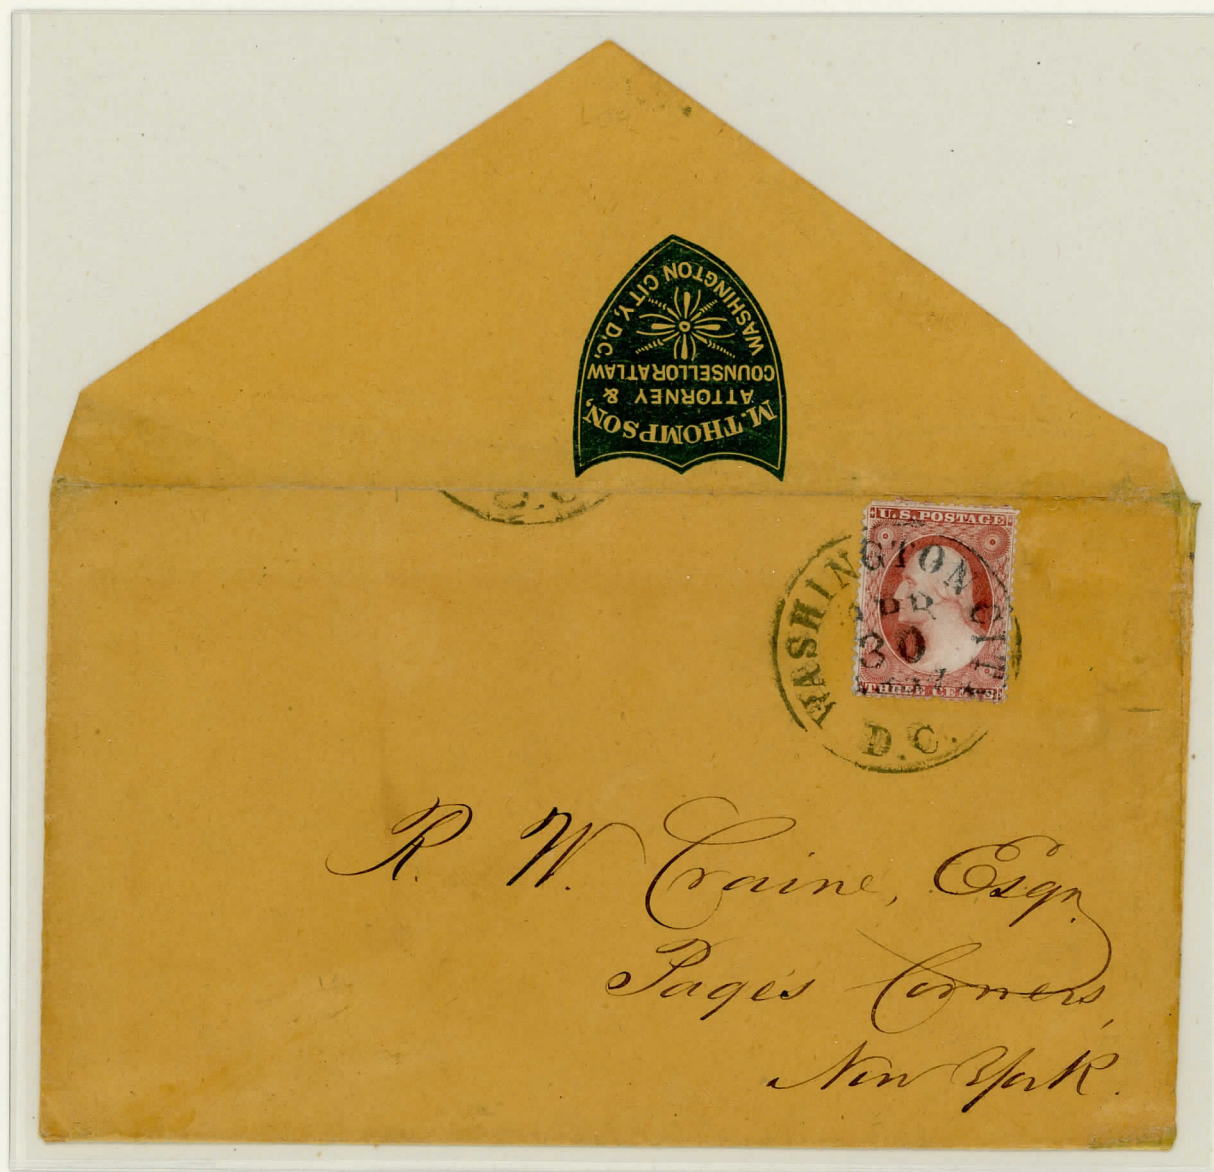 M. THOMPSON,
ATTORNEY &
COUNSELLOR AT LAW
WASHINGTON CITY, D.C.
U.S. POSTAGE
THREE CENTS
WASHINGTON CITY
APR
30
D.C.
R. W. Craine, Esqr.
Page's Corners,
New York.